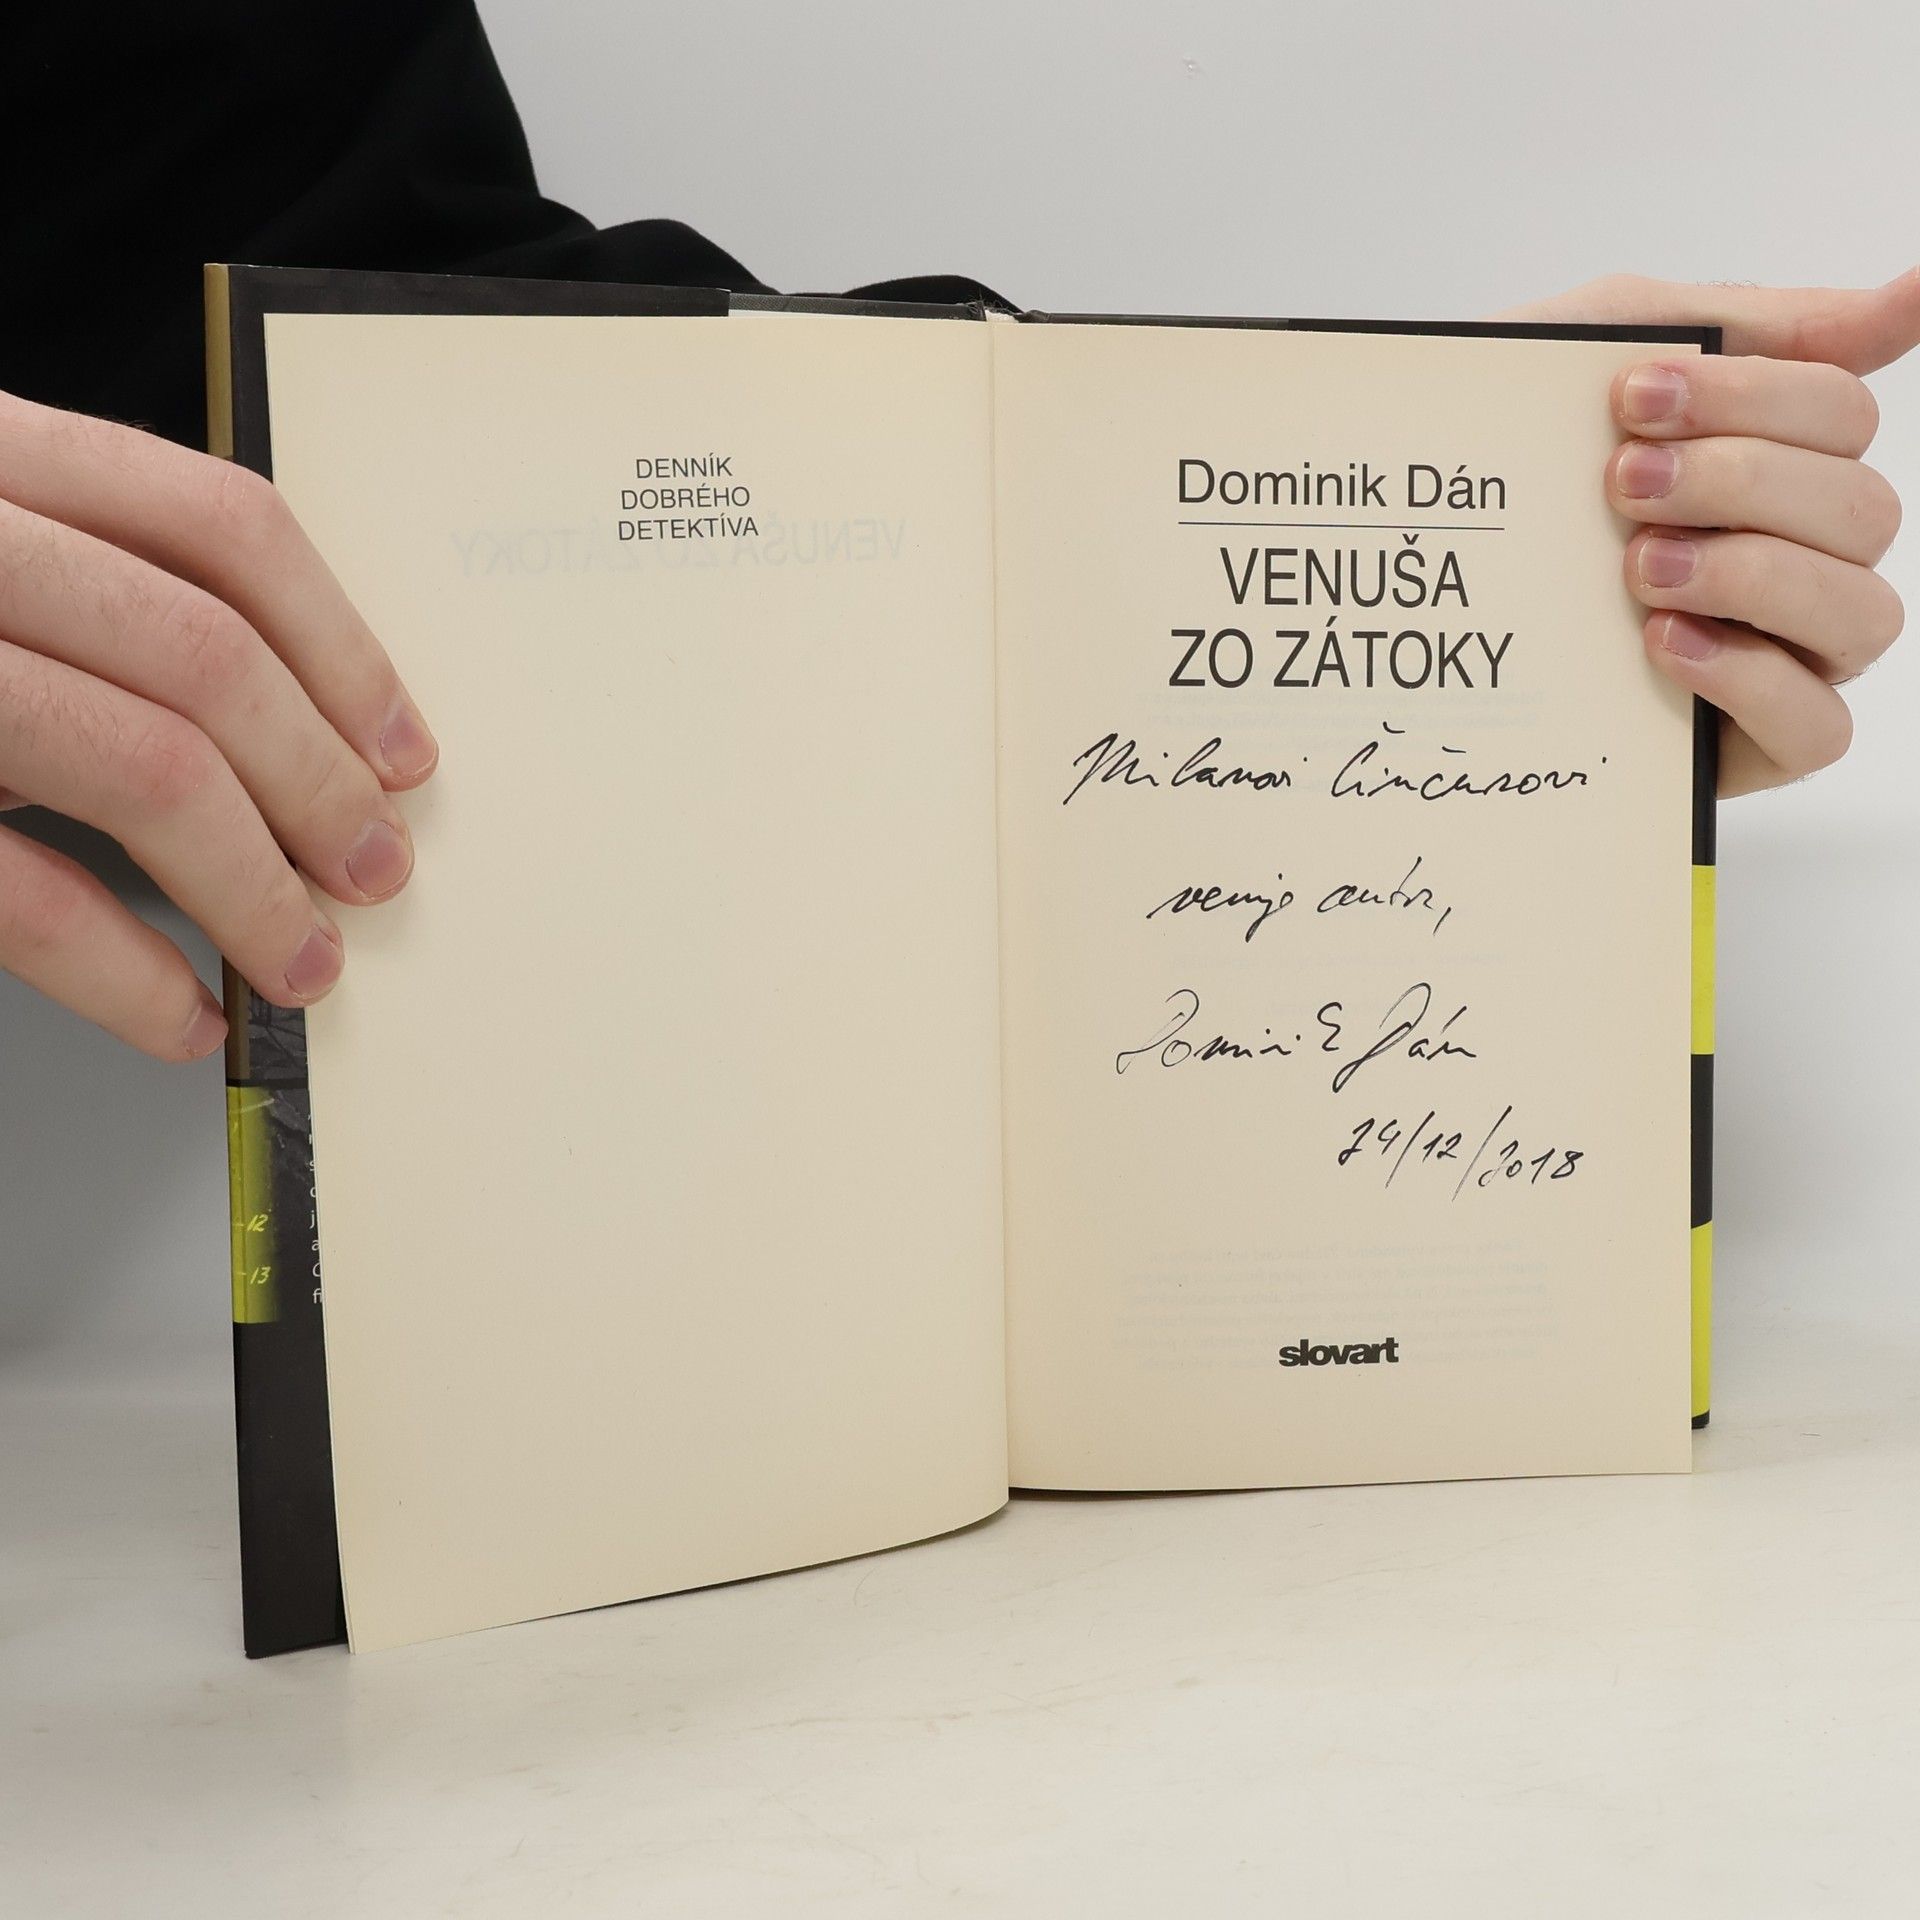 DENNÍK
DOBRÉHO
DETEKTÍVA
VENUŠA ZO ZÁTOKY
Dominik Dán
VENUŠA
ZO ZÁTOKY
Milanovi Činčurovi
venuje autor,
Dominik Dán
24/12/2018
slovart
-12
-13